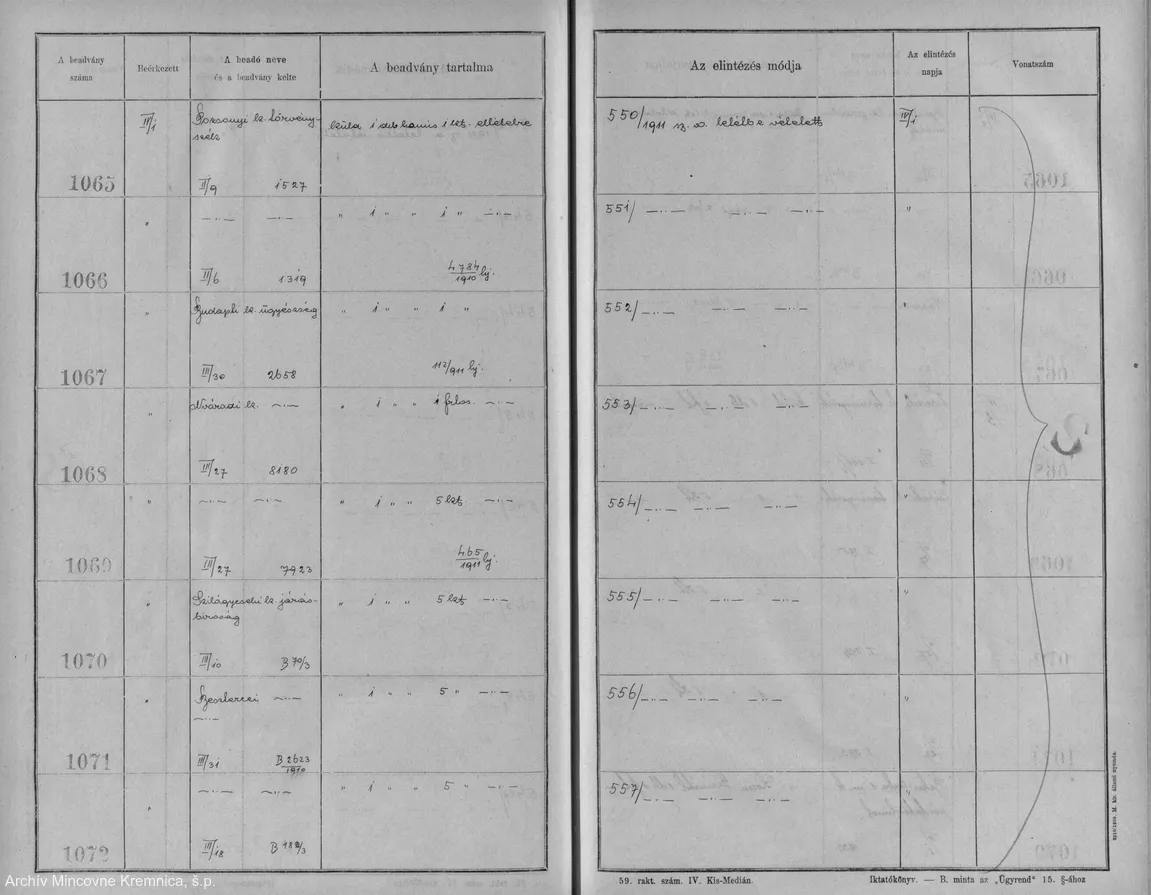 A beadvány száma
Beérkezett
A beadó neve és a beadvány kelte
A beadvány tartalma
Az elintézés módja
Az elintézés napja
Vonatszám
IV/1
Pozsonyi k. törvény-
szék
küld 1 db hamis 1 k.
550/1911 sz. a. lelélbe vételett
IV/1
1065
II/9 1527
" —·— —·— " 1 " " 1 " —·—
551/ —·— —·— —·— "
1066
III/6 1319
4784/1910 bj.
" Budapti k. ügyészség " 1 " " 1 "
552/ —·— —·— —·— "
1067
III/30 2658
112/911 bj.
" Nváradi k. —·— " 1 " " 1 —·—
553/ —·— —·— —·—
1068
III/27 8180
" —·— —·— " 1 " " 5 k —·—
554/ —·— —·— —·— "
1069
III/27 7923
465/1911 bj.
" Szilágycsehi k. járás-
biróság
" 1 " " 5 k —·—
555/ —·— —·— —·— "
1070
III/10 B 70/3
" Beszterczei —·— " 1 " 5 " —·—
—·—
556/ —·— —·— —·— "
1071
III/31 B 2623/1910
" —·— —·— " 1 " 5 " —·—
557/ —·— —·— —·— "
1072
III/18 B 182/3
59. rakt. szám. IV. Kis-Medián.
Iktatókönyv. — B. minta az „Ügyrend" 15. §-ához
Archív Mincovne Kremnica, š.p.